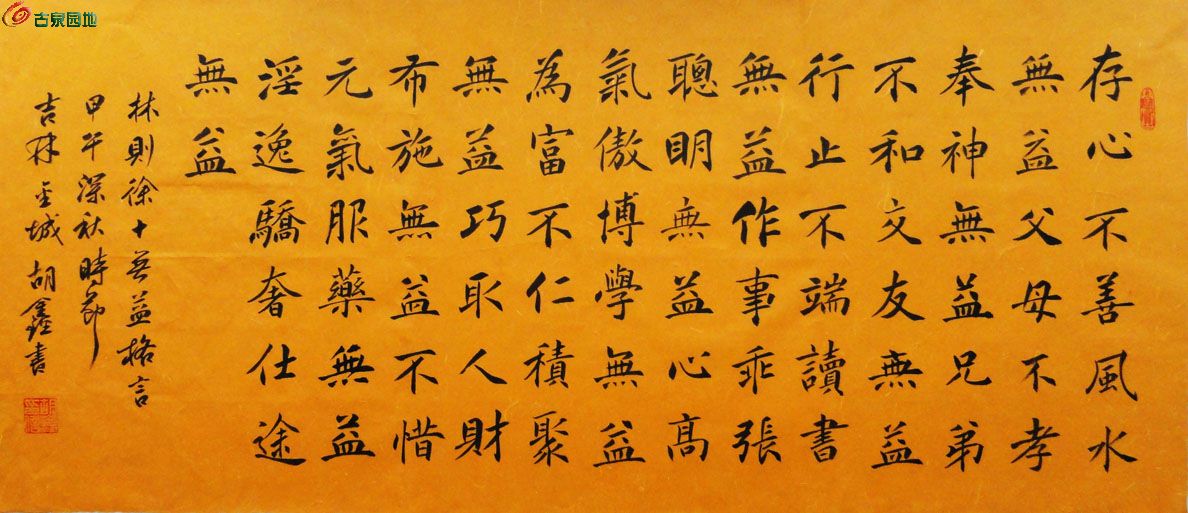 古泉园地
存心不善風水
無益父母不孝
奉神無益兄弟
不和交友無益
行止不端讀書
無益作事乖張
聰明無益心高
氣傲博學無益
為富不仁積聚
無益巧取人財
布施無益不惜
元氣服藥無益
淫逸驕奢仕途
無益
林則徐十無益格言
甲午深秋時節
吉林至城胡鑫書